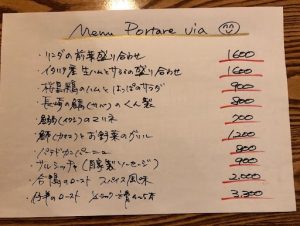 Menu Portare via
・リンダの前菜盛り合わせ 1600
・イタリア産 生ハムとサラミの盛り合わせ 1600
・桜島鶏のハムとはっぱのサラダ 900
・長崎の鯖(サバ)のくん製 800
・のマリネ 700
・とお野菜のグリル 1200
・パテドカンパーニュ 800
・サルシッチャ(自家製ソーセージ) 900
・合鴨のロースト スパイス風味 2,000
・のロースト 3,300